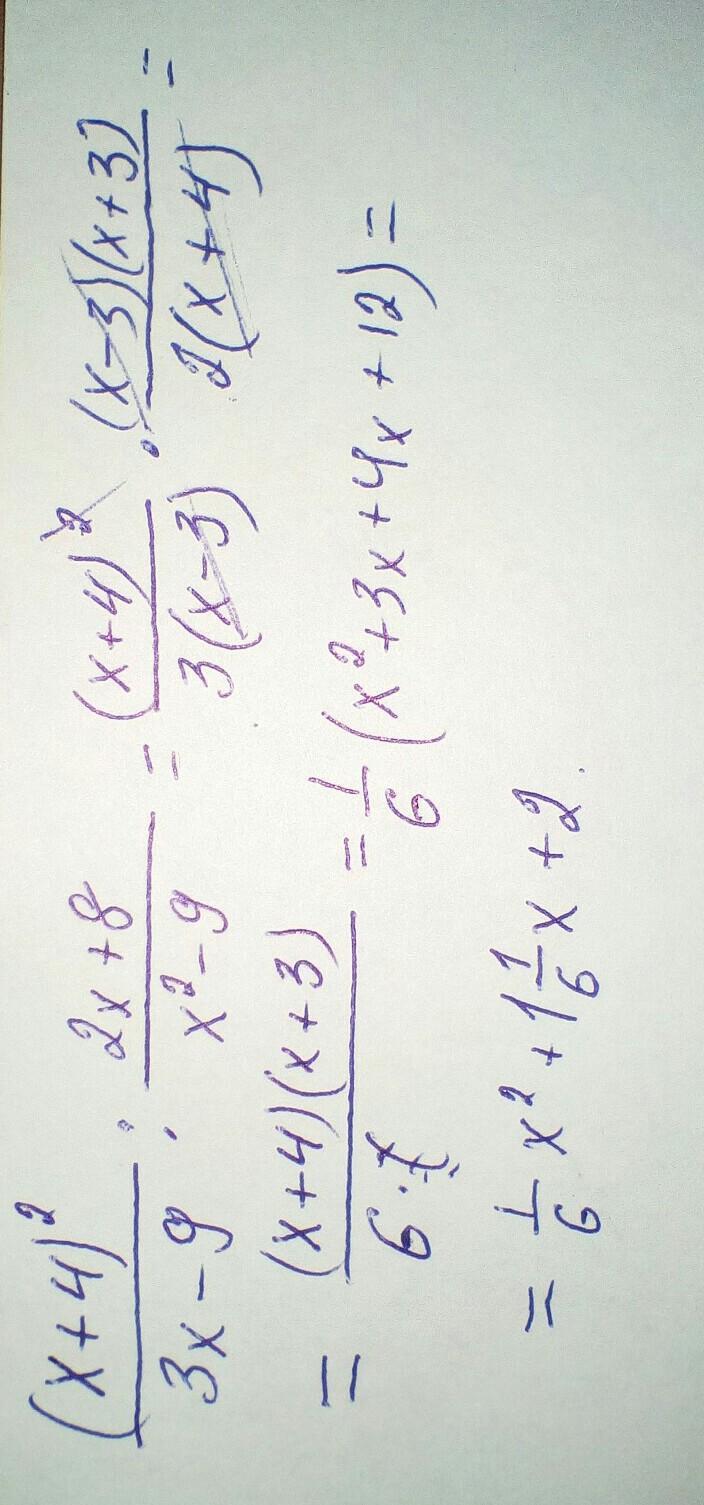 (x+4)²/(3x-9) : (2x+8)/(x²-9) = (x+4)²/(3(x-3)) · ((x-3)(x+3))/(2(x+4)) =
= ((x+4)(x+3))/6 = 1/6 (x²+3x+4x+12) =
= 1/6 x² + 1 1/6 x + 2.